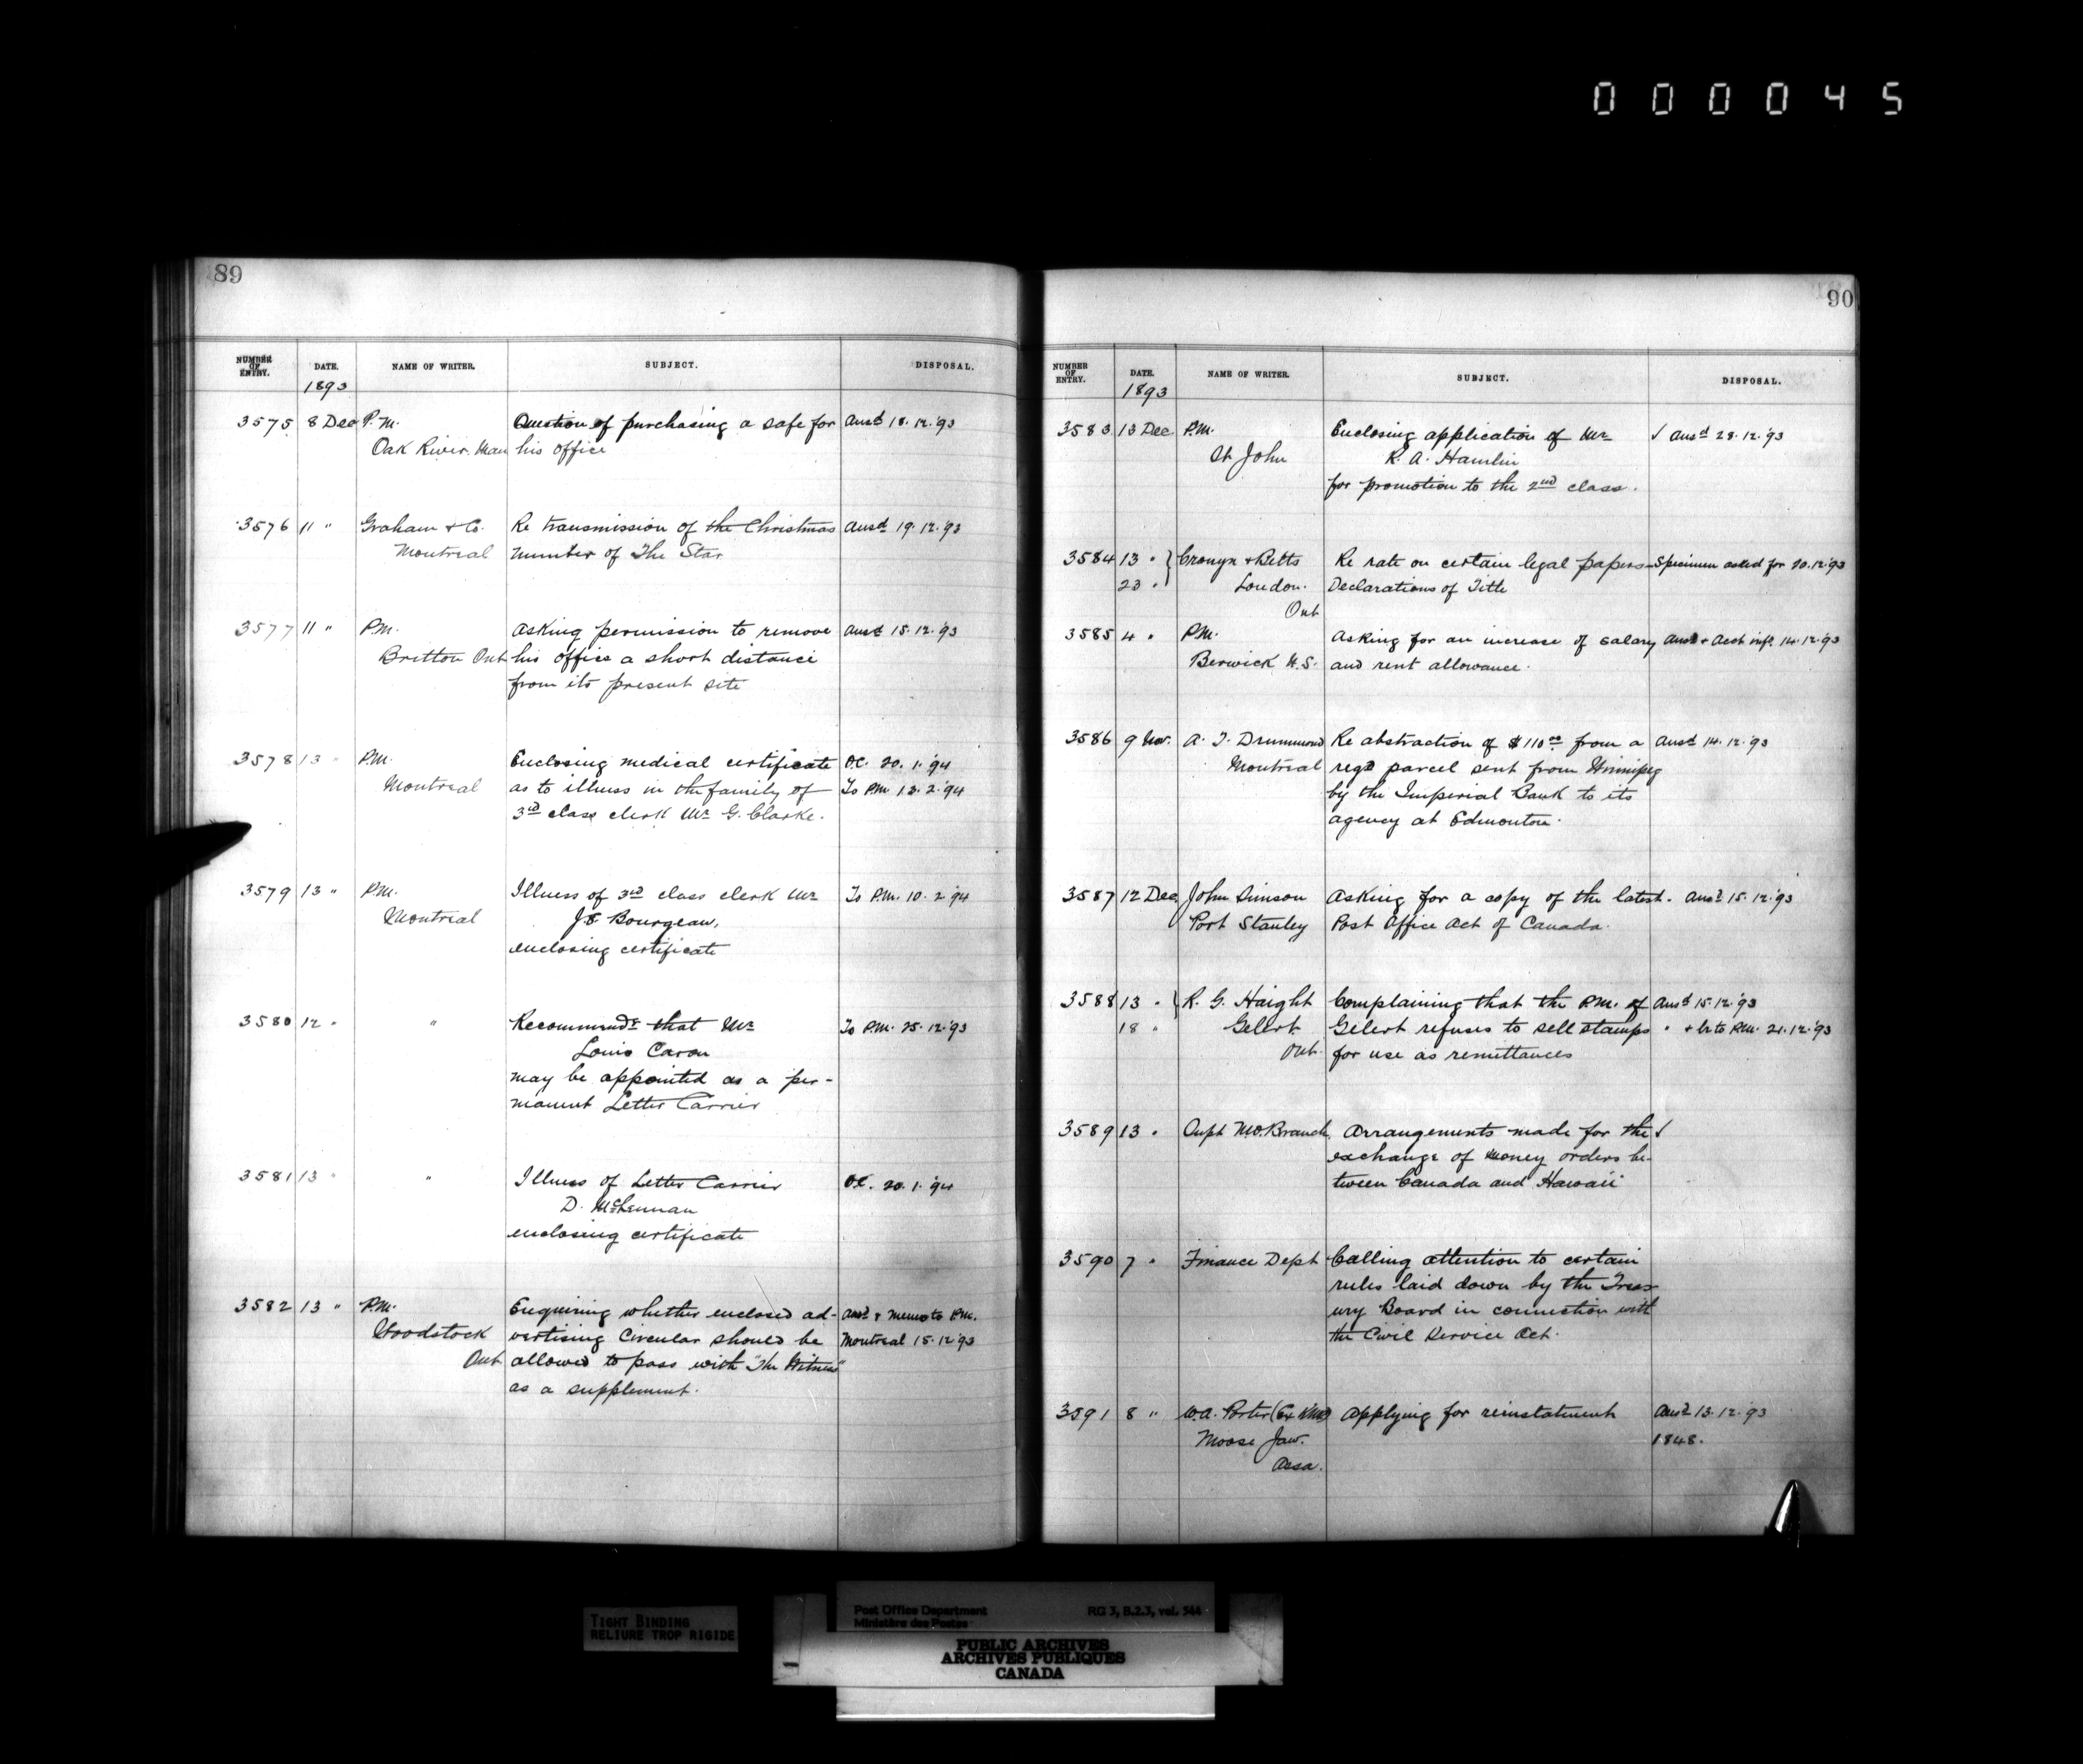 000045
89
NUMBER OF ENTRY. DATE. NAME OF WRITER. SUBJECT. DISPOSAL.
1893
3575 8 Dec P.M. Question of purchasing a safe for Ansd 18.12.'93
Oak River. Man his office
3576 11 " Graham & Co. Re transmission of the Christmas Ansd 19.12.'93
Montreal number of The Star
3577 11 " P.M. Asking permission to remove Ansd 15.12.'93
Britton Ont his office a short distance
from its present site
3578 13 " P.M. Enclosing medical certificate OC. 20.1.'94
Montreal as to illness in the family of To P.M. 12.2.'94
3rd class clerk Mr G. Clarke.
3579 13 " P.M. Illness of 3rd class clerk Mr To P.M. 10.2.'94
Montreal J.E. Bourgeau,
enclosing certificate
3580 12 " " Recommends that Mr To P.M. 25.12.'93
Louis Caron
may be appointed as a per-
manent Letter Carrier
3581 13 " " Illness of Letter Carrier OC. 20.1.'94
D. McLennan
enclosing certificate
3582 13 " P.M. Enquiring whether enclosed ad- Ansd & Memo to P.M.
Woodstock vertising Circular should be Montreal 15.12.'93
Ont allowed to pass with "The Witness"
as a supplement.
90
NUMBER OF ENTRY. DATE. NAME OF WRITER. SUBJECT. DISPOSAL.
1893
3583 13 Dec. P.M. Enclosing application of Mr √ Ansd 28.12.'93
St John R. A. Hamlin
for promotion to the 2nd class.
3584 13 " } Cronyn & Betts Re rate on certain legal papers- Specimen asked for 20.12.'93
23 " London. Declarations of Title
Ont
3585 4 " P.M. Asking for an increase of salary Ansd & Acct infd. 14.12.'93
Berwick N.S. and rent allowance.
3586 9 Nov. A. T. Drummond Re abstraction of $110.00 from a Ansd 14.12.'93
Montreal regd parcel sent from Winnipeg
by the Imperial Bank to its
agency at Edmonton.
3587 12 Dec John Simson Asking for a copy of the latest. Ansd 15.12.'93
Port Stanley Post Office Act of Canada.
3588 13 " } R. G. Haight Complaining that the P.M. of Ansd 15.12.'93
18 " Gelert Gelert refuses to sell stamps " & lr to P.M. 21.12.'93
Ont. for use as remittances
3589 13 " Supt M.O. Branch, Arrangements made for the √
exchange of money orders be-
tween Canada and Hawaii
3590 7 " Finance Dept Calling attention to certain
rules laid down by the Treas-
ury Board in connection with
the Civil Service Act.
3591 8 " W.A. Porter (Ex ) Applying for reinstatment Ansd 13.12.'93
Moose Jaw. 1848.
Assa.
TIGHT BINDING
RELIURE TROP RIGIDE
Post Office Department RG 3, B.2.3, vol. 544
Ministère des Postes
PUBLIC ARCHIVES
ARCHIVES PUBLIQUES
CANADA